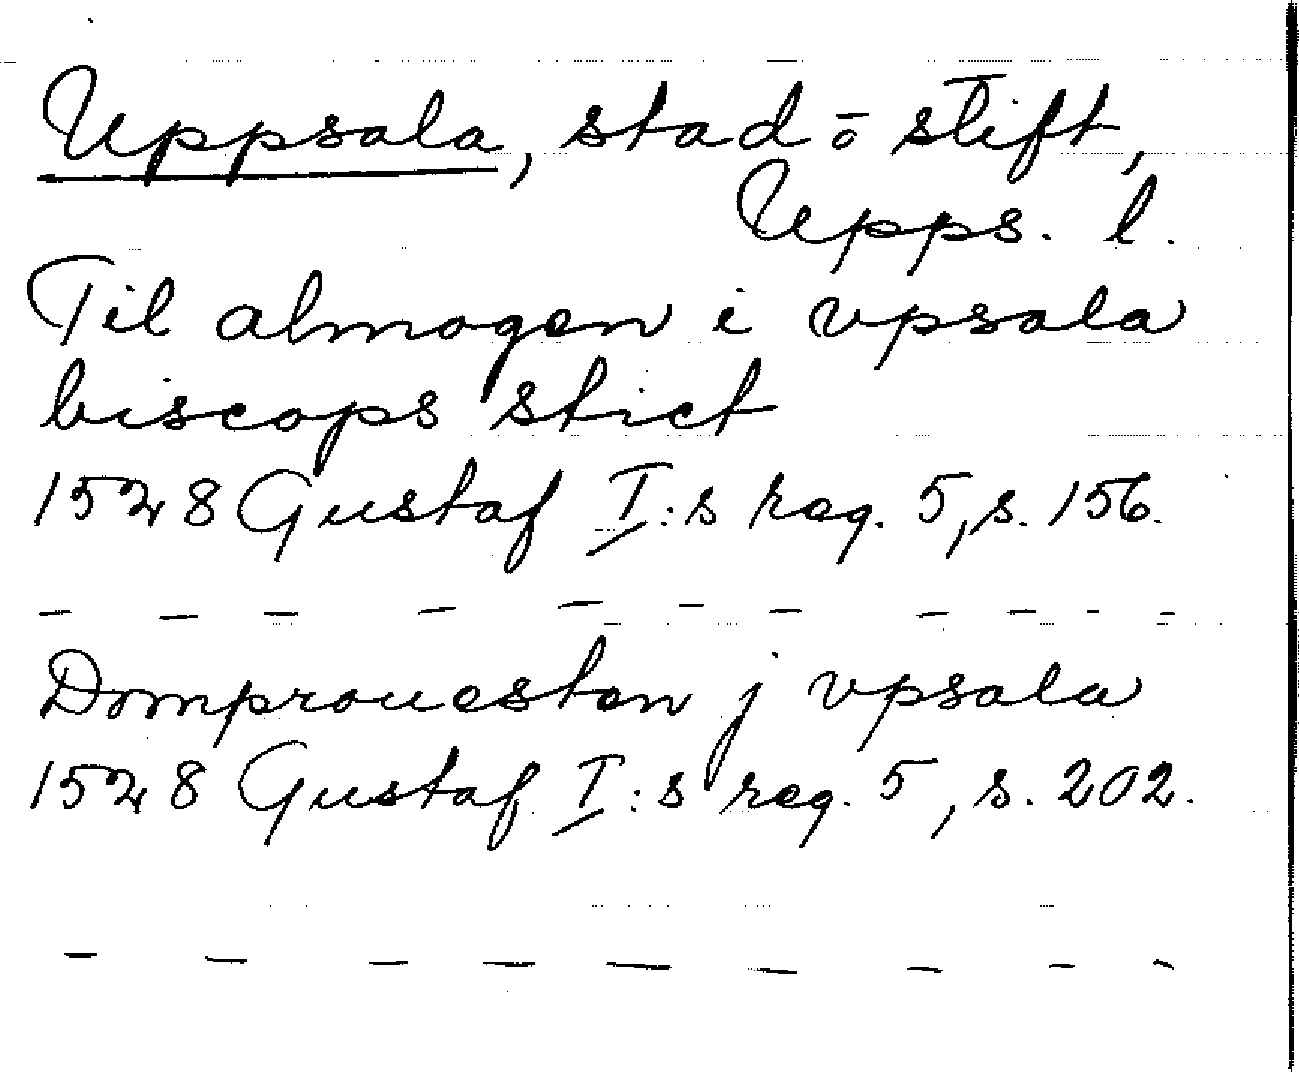 Uppsala, stad ō stift,
Upps. l.
Til almogen i vpsala
biscops stict
1528 Gustaf I:s reg. 5, s. 156.
— — — — — — — — — — —
Domprouesten j vpsala
1528 Gustaf I:s reg. 5, s. 202.
— — — — — — — — —